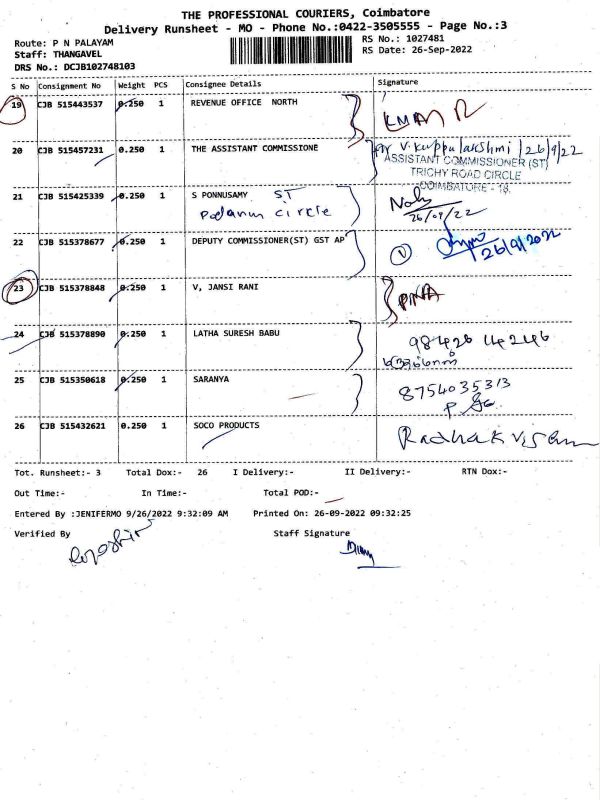 THE PROFESSIONAL COURIERS, Coimbatore
Delivery Runsheet - MO - Phone No.:0422-3505555 - Page No.:3
Route: P N PALAYAM
RS No.: 1027481
Staff: THANGAVEL
RS Date: 26-Sep-2022
DRS No.: DCJB102748103
S No Consignment No Weight PCS Consignee Details Signature
19 CJB 515443537 0.250 1 REVENUE OFFICE NORTH
20 CJB 515457231 0.250 1 THE ASSISTANT COMMISSIONE V. Kuppulakshmi 26/9/22
ASSISTANT COMMISSIONER (ST)
TRICHY ROAD CIRCLE
COIMBATORE - 18.
21 CJB 515425339 0.250 1 S PONNUSAMY ST
circle 26/09/22
22 CJB 515378677 0.250 1 DEPUTY COMMISSIONER(ST) GST AP 26/9/2022
23 CJB 515378848 0.250 1 V, JANSI RANI
24 CJB 515378890 0.250 1 LATHA SURESH BABU 98426 14246
25 CJB 515350618 0.250 1 SARANYA 8754035313
26 CJB 515432621 0.250 1 SOCO PRODUCTS
Tot. Runsheet:- 3 Total Dox:- 26 I Delivery:- II Delivery:- RTN Dox:-
Out Time:- In Time:- Total POD:-
Entered By :JENIFERMO 9/26/2022 9:32:09 AM Printed On: 26-09-2022 09:32:25
Verified By Staff Signature